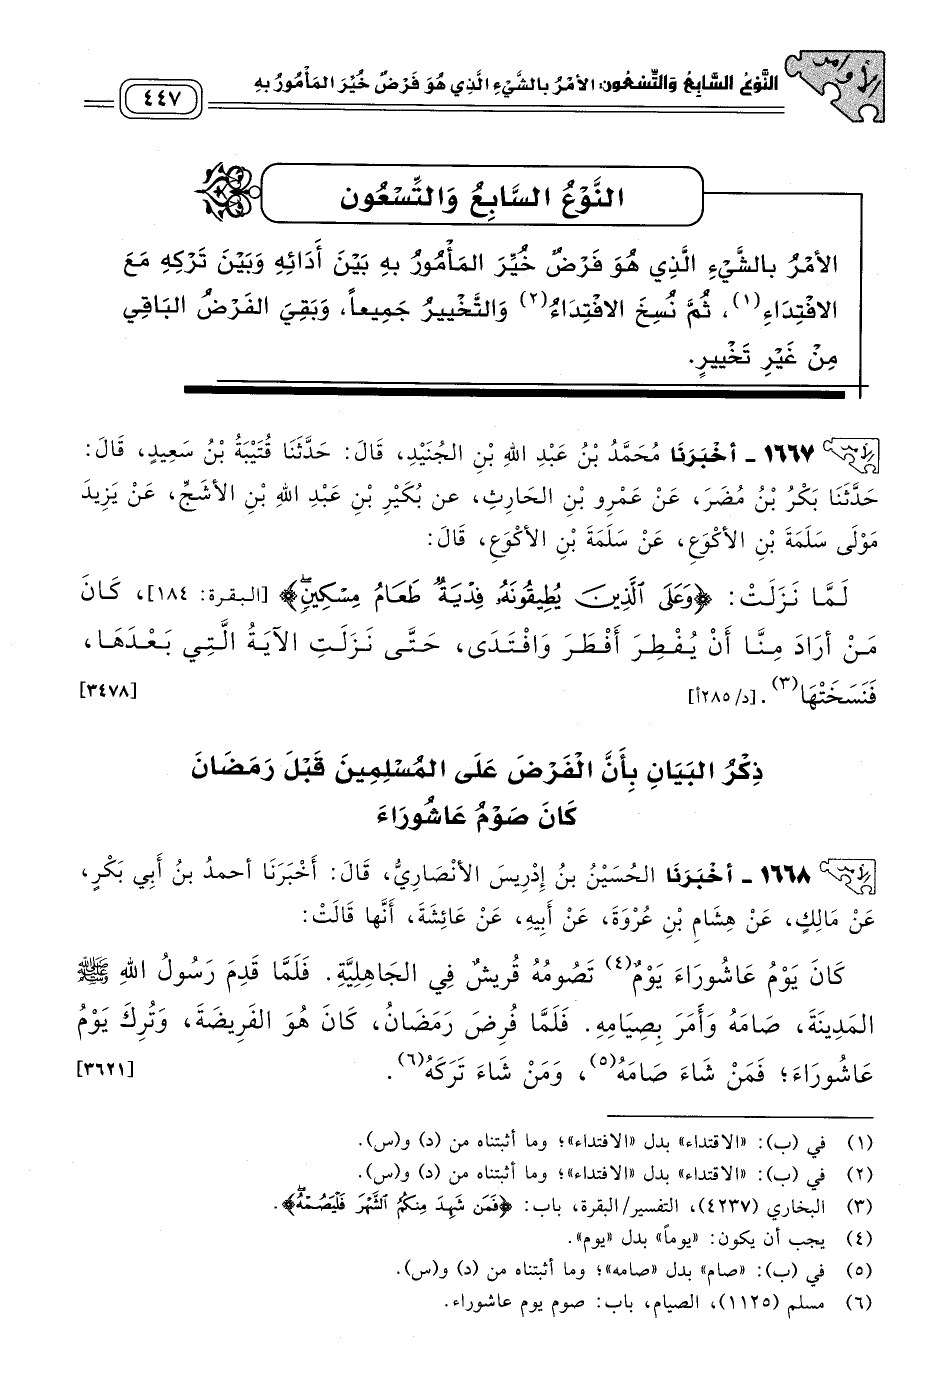 الأوامر
النَّوْعُ السَّابِعُ وَالتِّسْعُون: الأَمْرُ بِالشَّيْءِ الَّذِي هُوَ فَرْضٌ خُيِّرَ المَأْمُورُ بِهِ
٤٤٧
النَّوْعُ السَّابِعُ وَالتِّسْعُون
الأَمْرُ بِالشَّيْءِ الَّذِي هُوَ فَرْضٌ خُيِّرَ المَأْمُورُ بِهِ بَيْنَ أَدَائِهِ وَبَيْنَ تَرْكِهِ مَعَ
الافْتِدَاءِ(١)، ثُمَّ نُسِخَ الافْتِدَاءُ(٢) وَالتَّخْيِيرُ جَمِيعاً، وَبَقِيَ الفَرْضُ البَاقِي
مِنْ غَيْرِ تَخْيِيرٍ.
الأوامر ١٦٦٧ - أخْبَرَنَا مُحَمَّدُ بْنُ عَبْدِ اللهِ بْنِ الجُنَيْدِ، قَالَ: حَدَّثَنَا قُتَيْبَةُ بْنُ سَعِيدٍ، قَالَ:
حَدَّثَنَا بَكْرُ بْنُ مُضَرَ، عَنْ عَمْرِو بْنِ الحَارِثِ، عن بُكَيْرِ بْنِ عَبْدِ اللهِ بْنِ الأشَجِّ، عَنْ يَزِيدَ
مَوْلَى سَلَمَةَ بْنِ الأكْوَعِ، عَنْ سَلَمَةَ بْنِ الأكْوَعِ، قَالَ:
لَمَّا نَزَلَتْ: ﴿وَعَلَى ٱلَّذِينَ يُطِيقُونَهُۥ فِدْيَةٌ طَعَامُ مِسْكِينٍۖ﴾ [البقرة: ١٨٤]، كَانَ
مَنْ أرَادَ مِنَّا أَنْ يُفْطِرَ أَفْطَرَ وَافْتَدَى، حَتَّى نَزَلَتِ الآيَةُ الَّتِي بَعْدَهَا،
فَنَسَخَتْهَا(٣). [د/٢٨٥أ] [٣٤٧٨]
ذِكْرُ البَيَانِ بِأَنَّ الْفَرْضَ عَلَى المُسْلِمِينَ قَبْلَ رَمَضَانَ
كَانَ صَوْمُ عَاشُورَاءَ
الأوامر ١٦٦٨ - أخْبَرَنَا الحُسَيْنُ بنُ إدْرِيسَ الأنْصَارِيُّ، قَالَ: أَخْبَرَنَا أحمدُ بنُ أَبِي بَكْرٍ،
عَنْ مَالِكٍ، عَنْ هِشَامِ بْنِ عُرْوَةَ، عَنْ أَبِيهِ، عَنْ عَائِشَةَ، أَنَّها قَالَتْ:
كَانَ يَوْمُ عَاشُورَاءَ يَوْمٌ(٤) تَصُومُهُ قُرَيشٌ فِي الجَاهِلِيَّةِ. فَلَمَّا قَدِمَ رَسُولُ اللهِ ﷺ
المَدِينَةَ، صَامَهُ وَأَمَرَ بِصِيَامِهِ. فَلَمَّا فُرِضَ رَمَضَانُ، كَانَ هُوَ الفَرِيضَةَ، وَتُرِكَ يَوْمُ
عَاشُورَاءَ؛ فَمَنْ شَاءَ صَامَهُ(٥)، وَمَنْ شَاءَ تَرَكَهُ(٦). [٣٦٢١]
(١) في (ب): «الاقتداء» بدل «الافتداء»؛ وما أثبتناه من (د) و(س).
(٢) في (ب): «الاقتداء» بدل «الافتداء»؛ وما أثبتناه من (د) و(س).
(٣) البخاري (٤٢٣٧)، التفسير/البقرة، باب: ﴿فَمَن شَهِدَ مِنكُمُ ٱلشَّهْرَ فَلْيَصُمْهُۖ﴾.
(٤) يجب أن يكون: «يوماً» بدل «يوم».
(٥) في (ب): «صام» بدل «صامه»؛ وما أثبتناه من (د) و(س).
(٦) مسلم (١١٢٥)، الصيام، باب: صوم يوم عاشوراء.